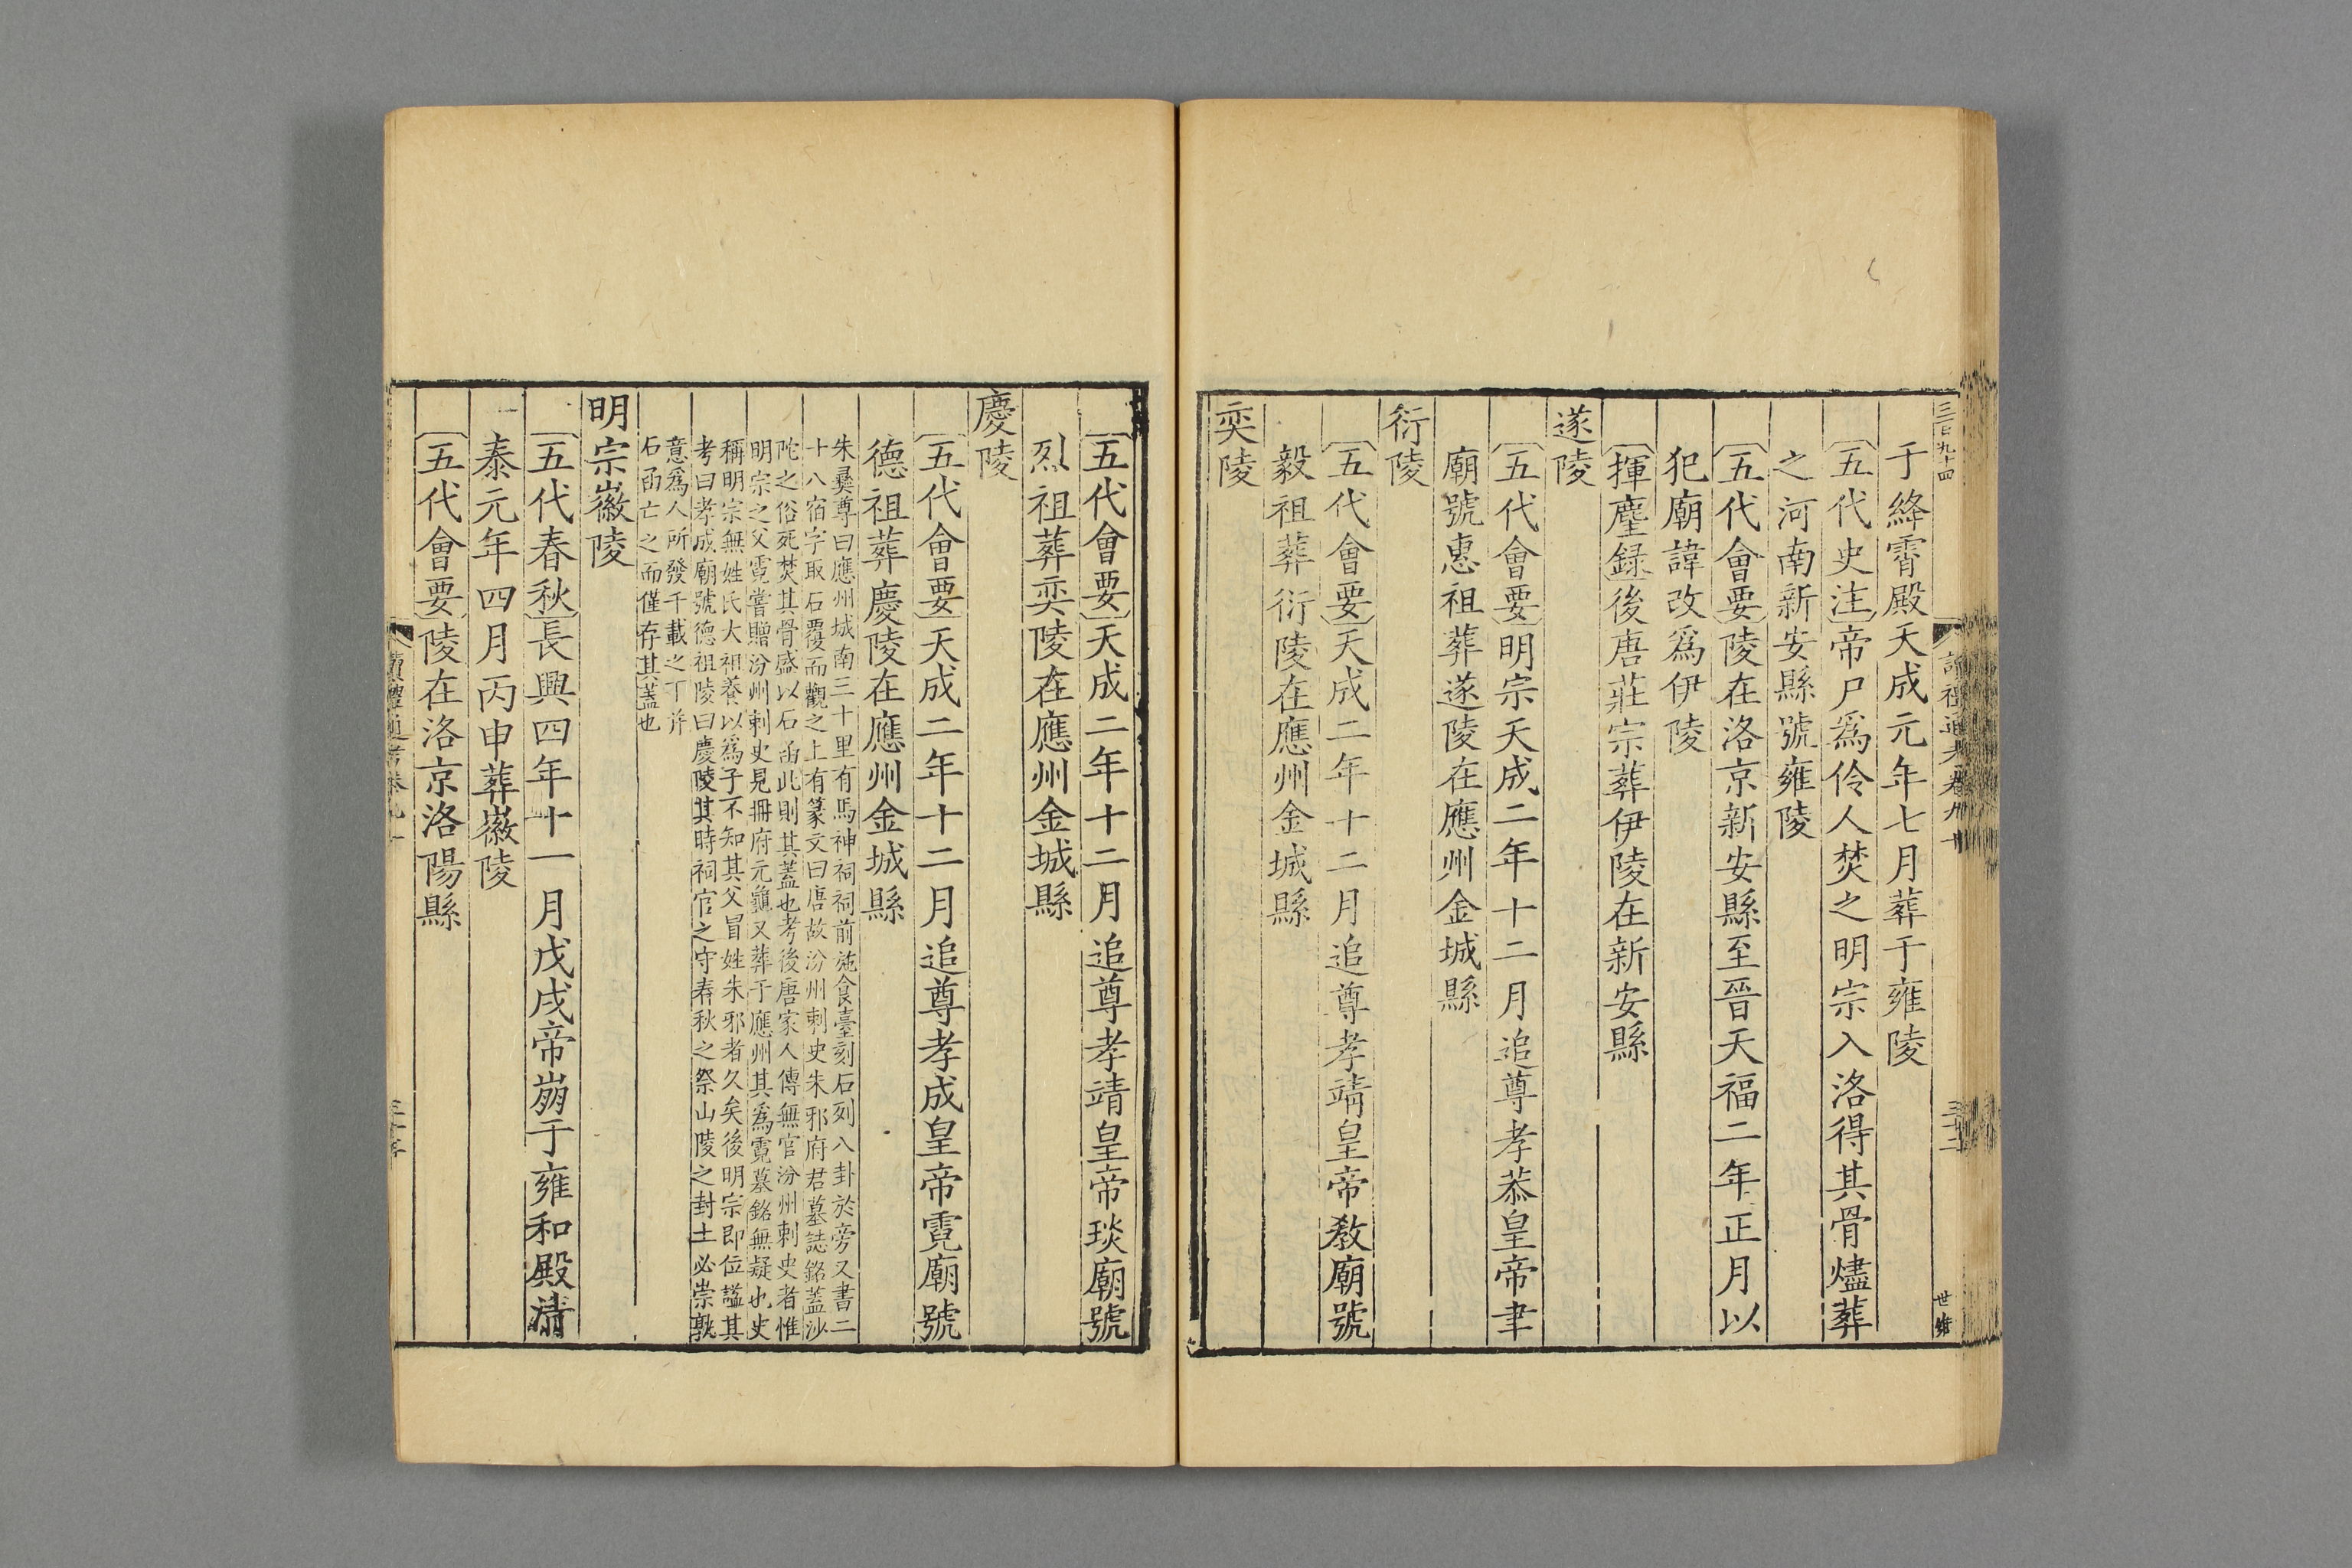 三百九十四
于絳霄殿天成元年七月葬于雍陵
〔五代史注〕帝尸爲伶人焚之明宗入洛得其骨燼葬
之河南新安縣號雍陵
〔五代會要〕陵在洛京新安縣至晉天福二年正月以
犯廟諱改爲伊陵
〔揮麈録〕後唐莊宗葬伊陵在新安縣
遂陵
〔五代會要〕明宗天成二年十二月追尊孝恭皇帝聿
廟號惠祖葬遂陵在應州金城縣
衍陵
〔五代會要〕天成二年十二月追尊孝靖皇帝教廟號
毅祖葬衍陵在應州金城縣
奕陵
〔五代會要〕天成二年十二月追尊孝靖皇帝琰廟號
烈祖葬奕陵在應州金城縣
慶陵
〔五代會要〕天成二年十二月追尊孝成皇帝霓廟號
德祖葬慶陵在應州金城縣
朱彝尊曰應州城南三十里有馬神祠祠前施食臺刻石列八卦於旁又書二
十八宿字取石覆而觀之上有篆文曰唐故汾州刺史朱邪府君墓誌銘蓋沙
陀之俗死焚其骨盛以石函此則其蓋也考後唐家人傳無官汾州刺史者惟
明宗之父霓嘗贈汾州刺史見冊府元龜又葬于應州其爲霓墓銘無疑也史
稱明宗無姓氏大祖養以爲子不知其父冒姓朱邪者久矣後明宗即位謚其
考曰孝成廟號德祖陵曰慶陵其時祠官之守春秋之祭山陵之封土必崇孰
意爲人所發千載之下并
石函亡之而僅存其蓋也
明宗徽陵
〔五代春秋〕長興四年十一月戊戌帝崩于雍和殿清
泰元年四月丙申葬徽陵
〔五代會要〕陵在洛京洛陽縣